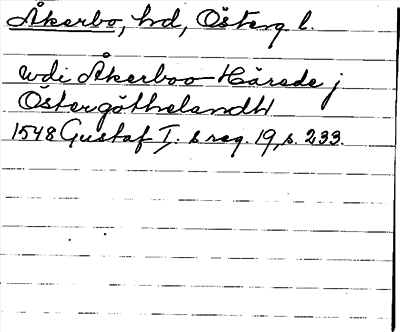 Åkerbo, hd, Österg l.
wdi Åkerboo Härede j
Östergöthelandh
1548 Gustaf I:s reg. 19, s. 233.